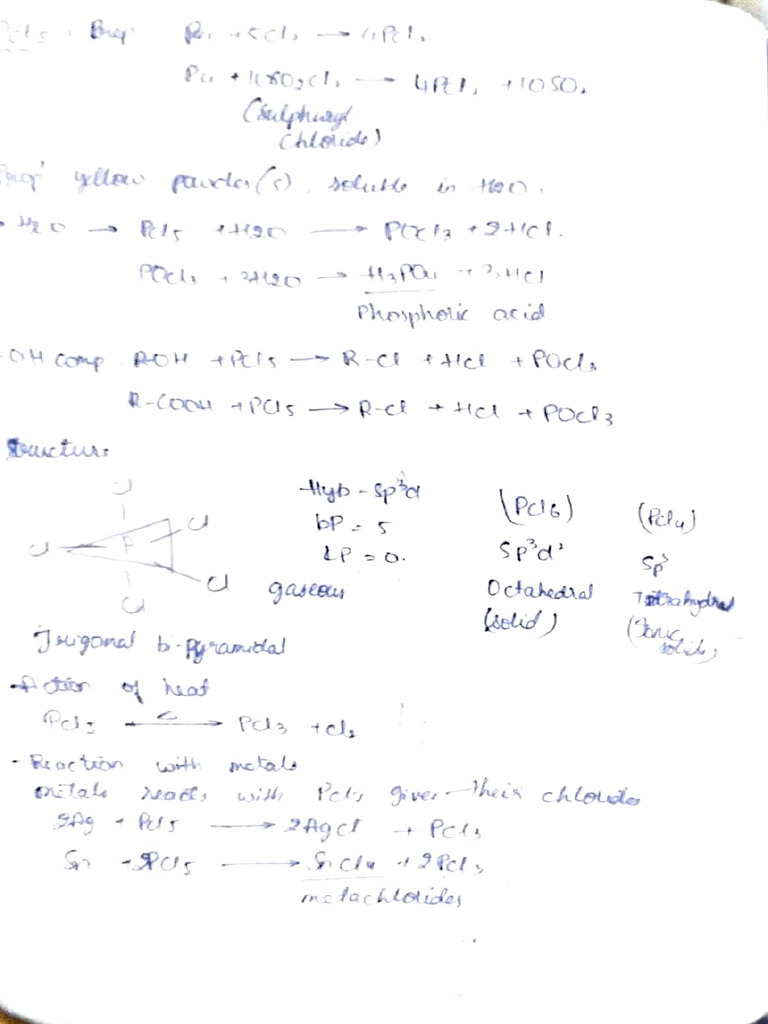 Pcl5 : Prep:
P4 + 5Cl2 → 4Pcl
P4 + 10SO2Cl2 → 4Pcl + 10SO2
(Sulphuryl
Chloride)
yellow powder(s), soluble in H2O.
H2O → Pcl5 + H2O → POcl3 + 2Hcl.
POcl3 + 3H2O → H3PO4 + 3Hcl
Phosphoric acid
-OH comp ROH + Pcl5 → R-Cl + Hcl + POcl3
R-COOH + PCl5 → R-cl + Hcl + POCl3
Structure
Cl
Cl P Cl
Cl Cl
Hyb - Sp3d
bP = 5
LP = 0.
gaseous
(PCl6)
Sp3d2
Octahedral
(solid)
(Pcl4)
Sp3
Tetrahydral
(Ionic
solids)
Trigonal bi-pyramidal
Action of heat
Pcl5 → Pcl3 + cl2
- Reaction with metals
metals reacts with Pcl5 gives their chlorides
2Ag + Pcl5 → 2AgCl + PCl3
Sn + 2PCl5 → SnCl4 + 2Pcl3
metachlorides